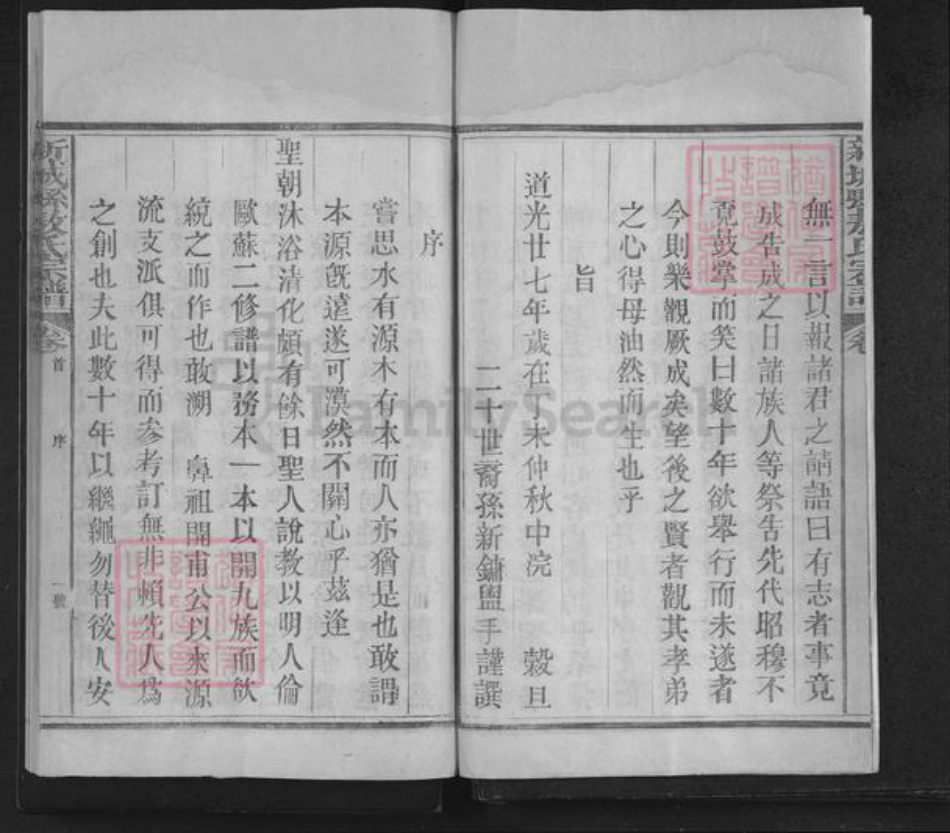 無一言以報諸君之請語曰有志者事竟
成告成之日諸族人等祭告先代昭穆不
竟鼓掌而笑曰數十年欲舉行而未遂者
今則樂觀厥成矣望後之賢者觀其孝弟
之心得毋油然而生也乎
旨
道光廿七年歲在丁未仲秋中浣 穀旦
二十世裔孫新鏞盥手謹譔
序
嘗思水有源木有本而人亦猶是也敢謂
本源旣遠遂可漠然不關心乎茲逢
聖朝沐浴清化頗有餘日聖人說教以明人倫
歐蘇二修譜以務本一本以開九族而欲
統之而作也敢溯 鼻祖開甫公以來源
流支派俱可得而叅考訂無非賴先人爲
之創也夫此數十年以繼繩勿替後人安
新城縣敖氏宗譜 卷首 序 一號
FamilySearch